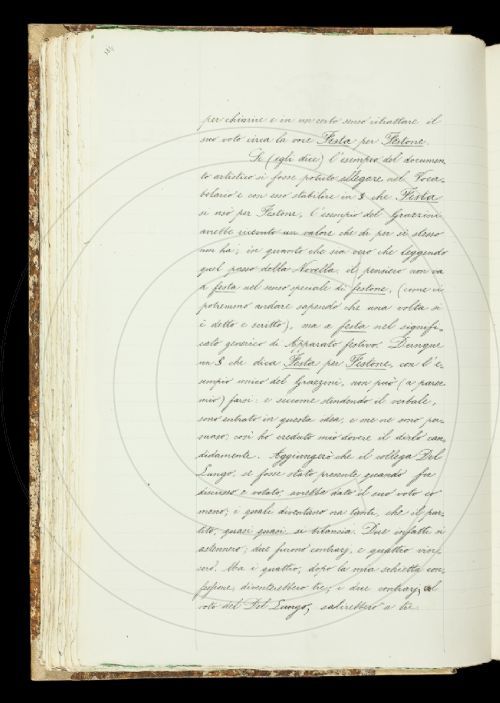 per chiarire e in un certo senso ritrattare il
suo voto circa la voce Festa per Festone.
Se (egli dice) l'esempio del documen
to artistico si fosse potuto allegare nel Voca-
bolario e con esso stabilire un § che Festa
si usò per Festone, l'esempio del Grazzini
avrebbe ricevuto un valore che di per sè stesso
non ha; in quanto che sia vero che leggendo
quel passo della Novella, il pensiero non va
a festa nel senso speciale di festone, (come vi
potremmo andare sapendo che una volta si
è detto e scritto), ma a festa nel signifi-
cato generico di Apparato festivo. Dunque
un § che dica Festa per Festone, con l'e-
sempio unico del Grazzini, non può (a parer
mio) farsi: e siccome stendendo il verbale,
sono entrato in questa idea, e me ne sono per-
suaso; così ho creduto mio dovere il dirlo can-
didamente. Aggiungerò che il collega Del
Lungo, se fosse stato presente quando fu
discusso e votato, avrebbe dato il suo voto co
meno; i quali diventano ora tanti, che il par-
tito, quasi quasi si bilancia. Due infatti si
astennero; due furono contrarj, e quattro
Ma i quattro, dopo la mia schietta con-
fessione, diventerebbero tre; i due contrarj, col
voto del Del Lungo, salirebbero a tre